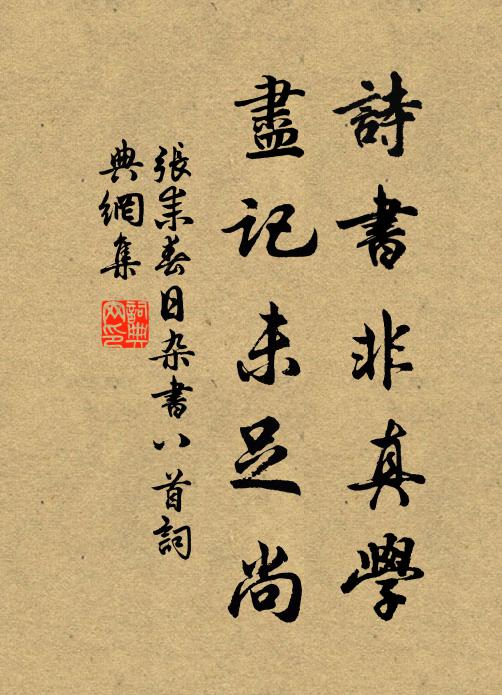 詩書非真學
盡記未足尚
張耒春日杂書八首詞
典網集
詞典網印